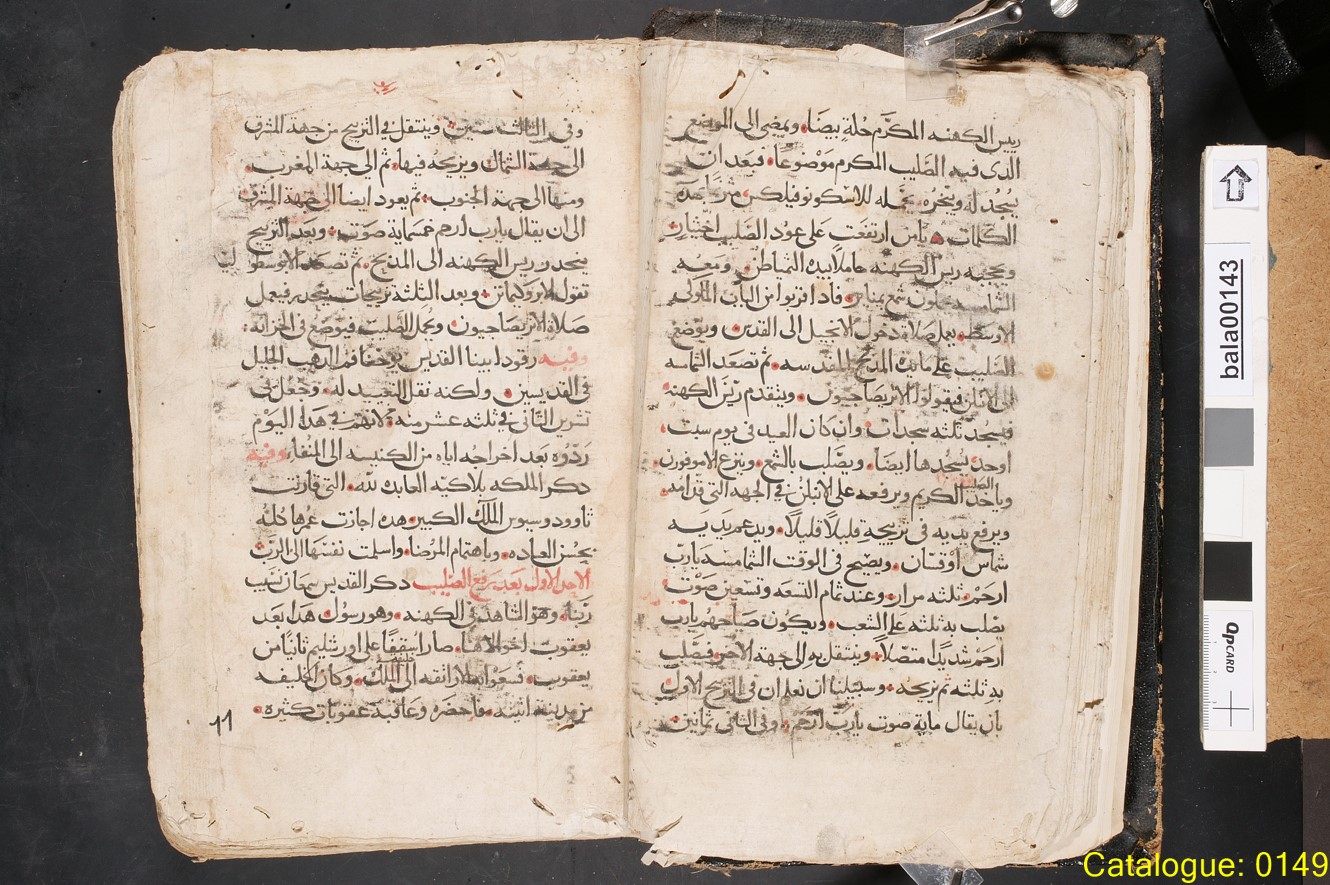 ريس الكهنه المكرّم حُلة بيضا، ويمضى الى الموضع
الدى فيه الصَّليب المكرم مَوْضوعا. فبَعد ان
يسُجُد له ويبخره. يحمله للاسكونوفيلاكس
الكلمات يامن ارتفعت على عود الصَّليب اختيار
ويجيه ريس الكهنه حاملا بيده الشماطن. ومعه
شمع بمناير. فادا قربوا من الباب الملوكى
الاوسط. بعد صلاة دخول الانجيل الى القدس. ويوضع
الصَّليب على مايدة المدبح المقدسه. ثم تصعد الشماسه
الى الانبلن فيقولوا الاتريصاجيون. ويتقدم ريّس الكهنه
فيسجد ثلثه سجدات. وان كان العيد فى يوم سبت.
اوحد يسجدها ايضا. ويصَّلب بالشمع. وينزع الاموفورن.
وياخد الصليب الكريم ويرفعه على الانبلن فى الجهه التى قدامه.
ويرفع يديه فى تزييحة قليلاً قليلاً. ويدعم يديه
شماس أوقسّان. ويصيح فى الوقت الشمامسه يارب
ارحم. ثلثه مرار. وعند تمام السبعه وتسعين صَوْت.
يصلب به ثلثه على الشعب. ويكون صياحهم يارب
ارحم شديدًا متصلاً. وينتقل به الى جهة الاخر فيصَّلب
به ثلثه ثم يزيحه. وسبيلنا ان نعلم ان فى التزييح الاول
بان يقال مايه صوت يارب ارحم. وفى الثانى ثمانين.
وفى الثالث ستين. وينتقل فى التزييح من جهة المشرق
الى جهة الشمال ويزيحه فيها. ثم الى جهة المغرب.
ومنها الى جهة الجنوب. ثم يعود ايضا الى جهة المشرق
الى ان يقال يارب ارحم خمسمايه صوت. وبعد التزييح
ينحدر ريس الكهنه الى المدبح. ثم تصعد
تقول وبعد الثلثه تزييحات ينحدر فيعمل
صلاة الاتريصاجيون. ويحمل الصَّليب فيوضع فى الخزانه:
وفيه رقود ابينا القديس يوحنا فم الدهب الجليل
فى القديسين. ولكنه نقل التعييد له. وجعل فى
تشرين الثانى فى ثلثه عشر منه. لانهم فى هدا اليوم
رَدّوُه بعد اخراجه اياه من الكنيسه الى المنفا. وفيه
دكر الملكه بلاكيّه العابده لله. التى قارنت
تاوودوسيوس الملك الكبير. هده اجازت عمرها كله
بحسن العباده. وباهتمام المرضا. واسلمت نفسها الى الربّ
الاحد الاول بعد رفع الصليب دكر القديس سمعان نسيب
ربّنا. وهو الشاهد فى الكهنه. وهو رسول. هدا بعد
يعقوب اخو الالاهنا. صار اسقفًا على اورشليم ثانيًا من
يعقوب. فسعوا به الاراتقه الى الملك. وكان الخليفه
من مدينة اتينه. فاحضره وعاقبه عقوبات كثيره.
11
bala00143
QPCARD
Catalogue: 0149